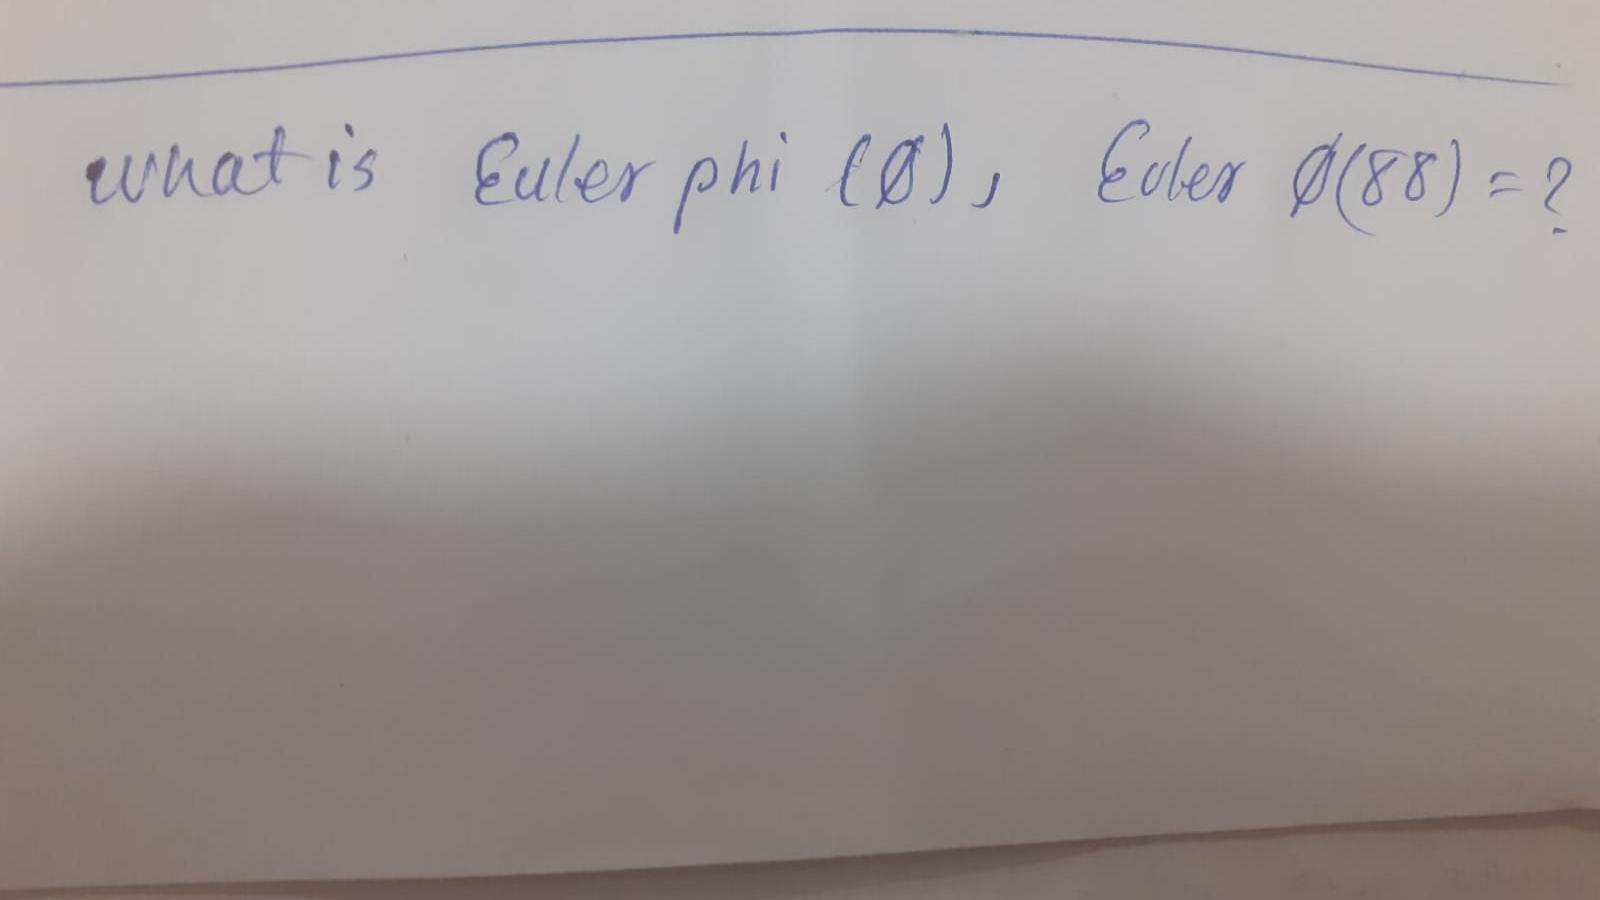 what is Euler phi (Ø), Euler Ø(88) = ?